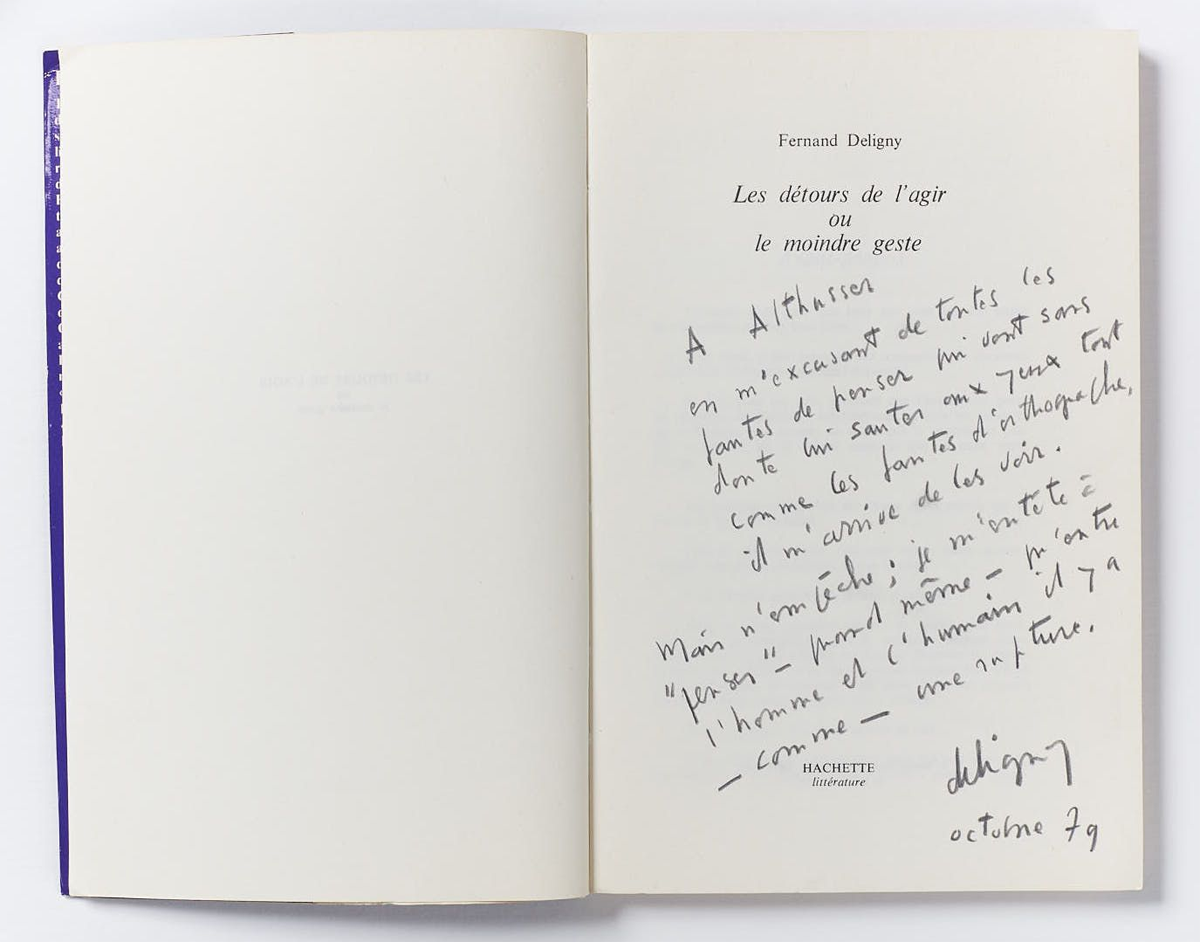 Fernand Deligny
Les détours de l'agir
ou
le moindre geste
A Althusser
en m'excusant de toutes les
fautes de penser qui vont sans
doute lui sauter aux yeux tout
comme les fautes d'orthographe,
il m'arrive de les voir.
Mais n'empêche ; je m'entête à
"penser" — quand même — qu'entre
l'homme et l'humain il y a
— comme — une rupture.
HACHETTE
littérature
deligny
octobre 79